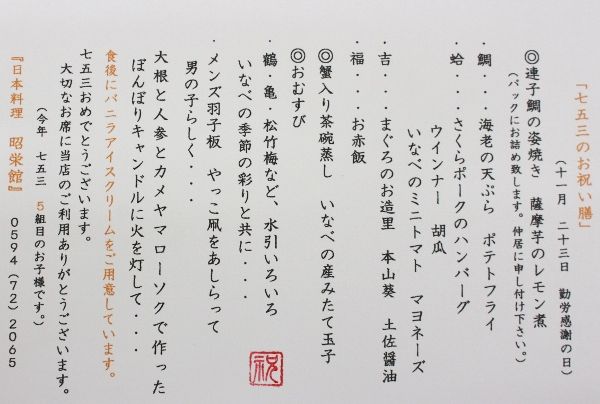 「七五三のお祝い膳」
（十一月　二十三日　勤労感謝の日）
◎連子鯛の姿焼き　薩摩芋のレモン煮
（パックにお詰め致します。仲居に申し付け下さい。）
・鯛・・・海老の天ぷら　ポテトフライ
・蛤・・・さくらポークのハンバーグ
ウインナー　胡瓜
いなべのミニトマト　マヨネーズ
・吉・・・まぐろのお造里　本山葵　土佐醤油
・福・・・お赤飯
◎蟹入り茶碗蒸し　いなべの産みたて玉子
◎おむすび
・鶴・亀・松竹梅など、水引いろいろ
いなべの季節の彩りと共に・・・
・メンズ羽子板　やっこ凧をあしらって
男の子らしく・・・
大根と人参とカメヤマローソクで作った
ぼんぼりキャンドルに火を灯して・・・
食後にバニラアイスクリームをご用意しています。
七五三おめでとうございます。
大切なお席に当店のご利用ありがとうございます。
（今年　七五三　5組目のお子様です。）
『日本料理　昭栄館』　0594（72）2065
祝